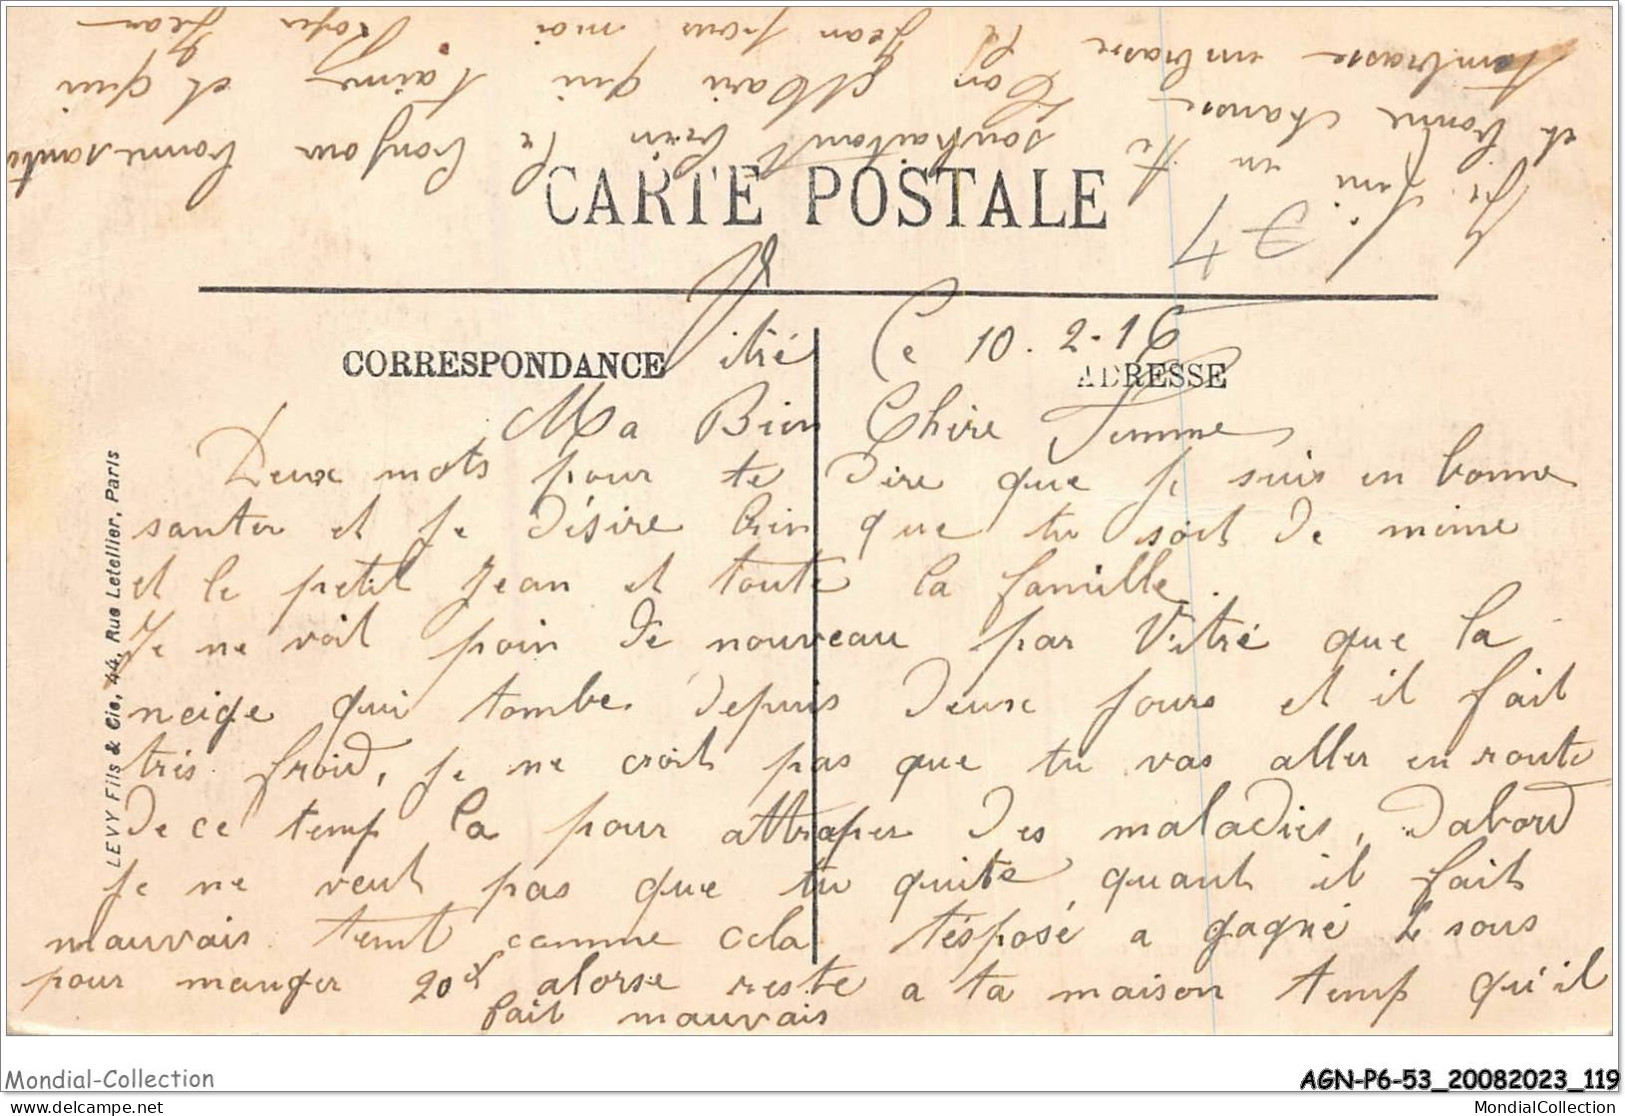 CARTE POSTALE
CORRESPONDANCE
ADRESSE
Vitré le 10.2-16
Ma Bien Chire Femme
Deux mots pour te Dire que je suis en bonne
santer et je Désire bien que tu soit De mime
et le petit Jean et toute la famille.
Je ne voit poin De nouveau par Vitré que la
neige qui tombe Depuis Deux jours et il fait
tris froid, je ne croit pas que tu vas aller en route
De ce temp la pour attraper Des maladies, Dabord
je ne veut pas que tu quite quant il fait
mauvais temt comme cela t'éxposé a gagné 2 sous
pour manger 20 alorse reste a ta maison temp qu'il
fait mauvais
Je fini en te souhaitant bien le bonjour bonne santé
et bonne chanse Ton Mari qui t'aime et qui
t'embrasse embrasse le Jean pour moi Jean
37
LEVY Fils & Cie, 44, Rue Letellier, Paris
Mondial-Collection
AGN-P6-53_20082023_119
www.delcampe.net
MondialCollection